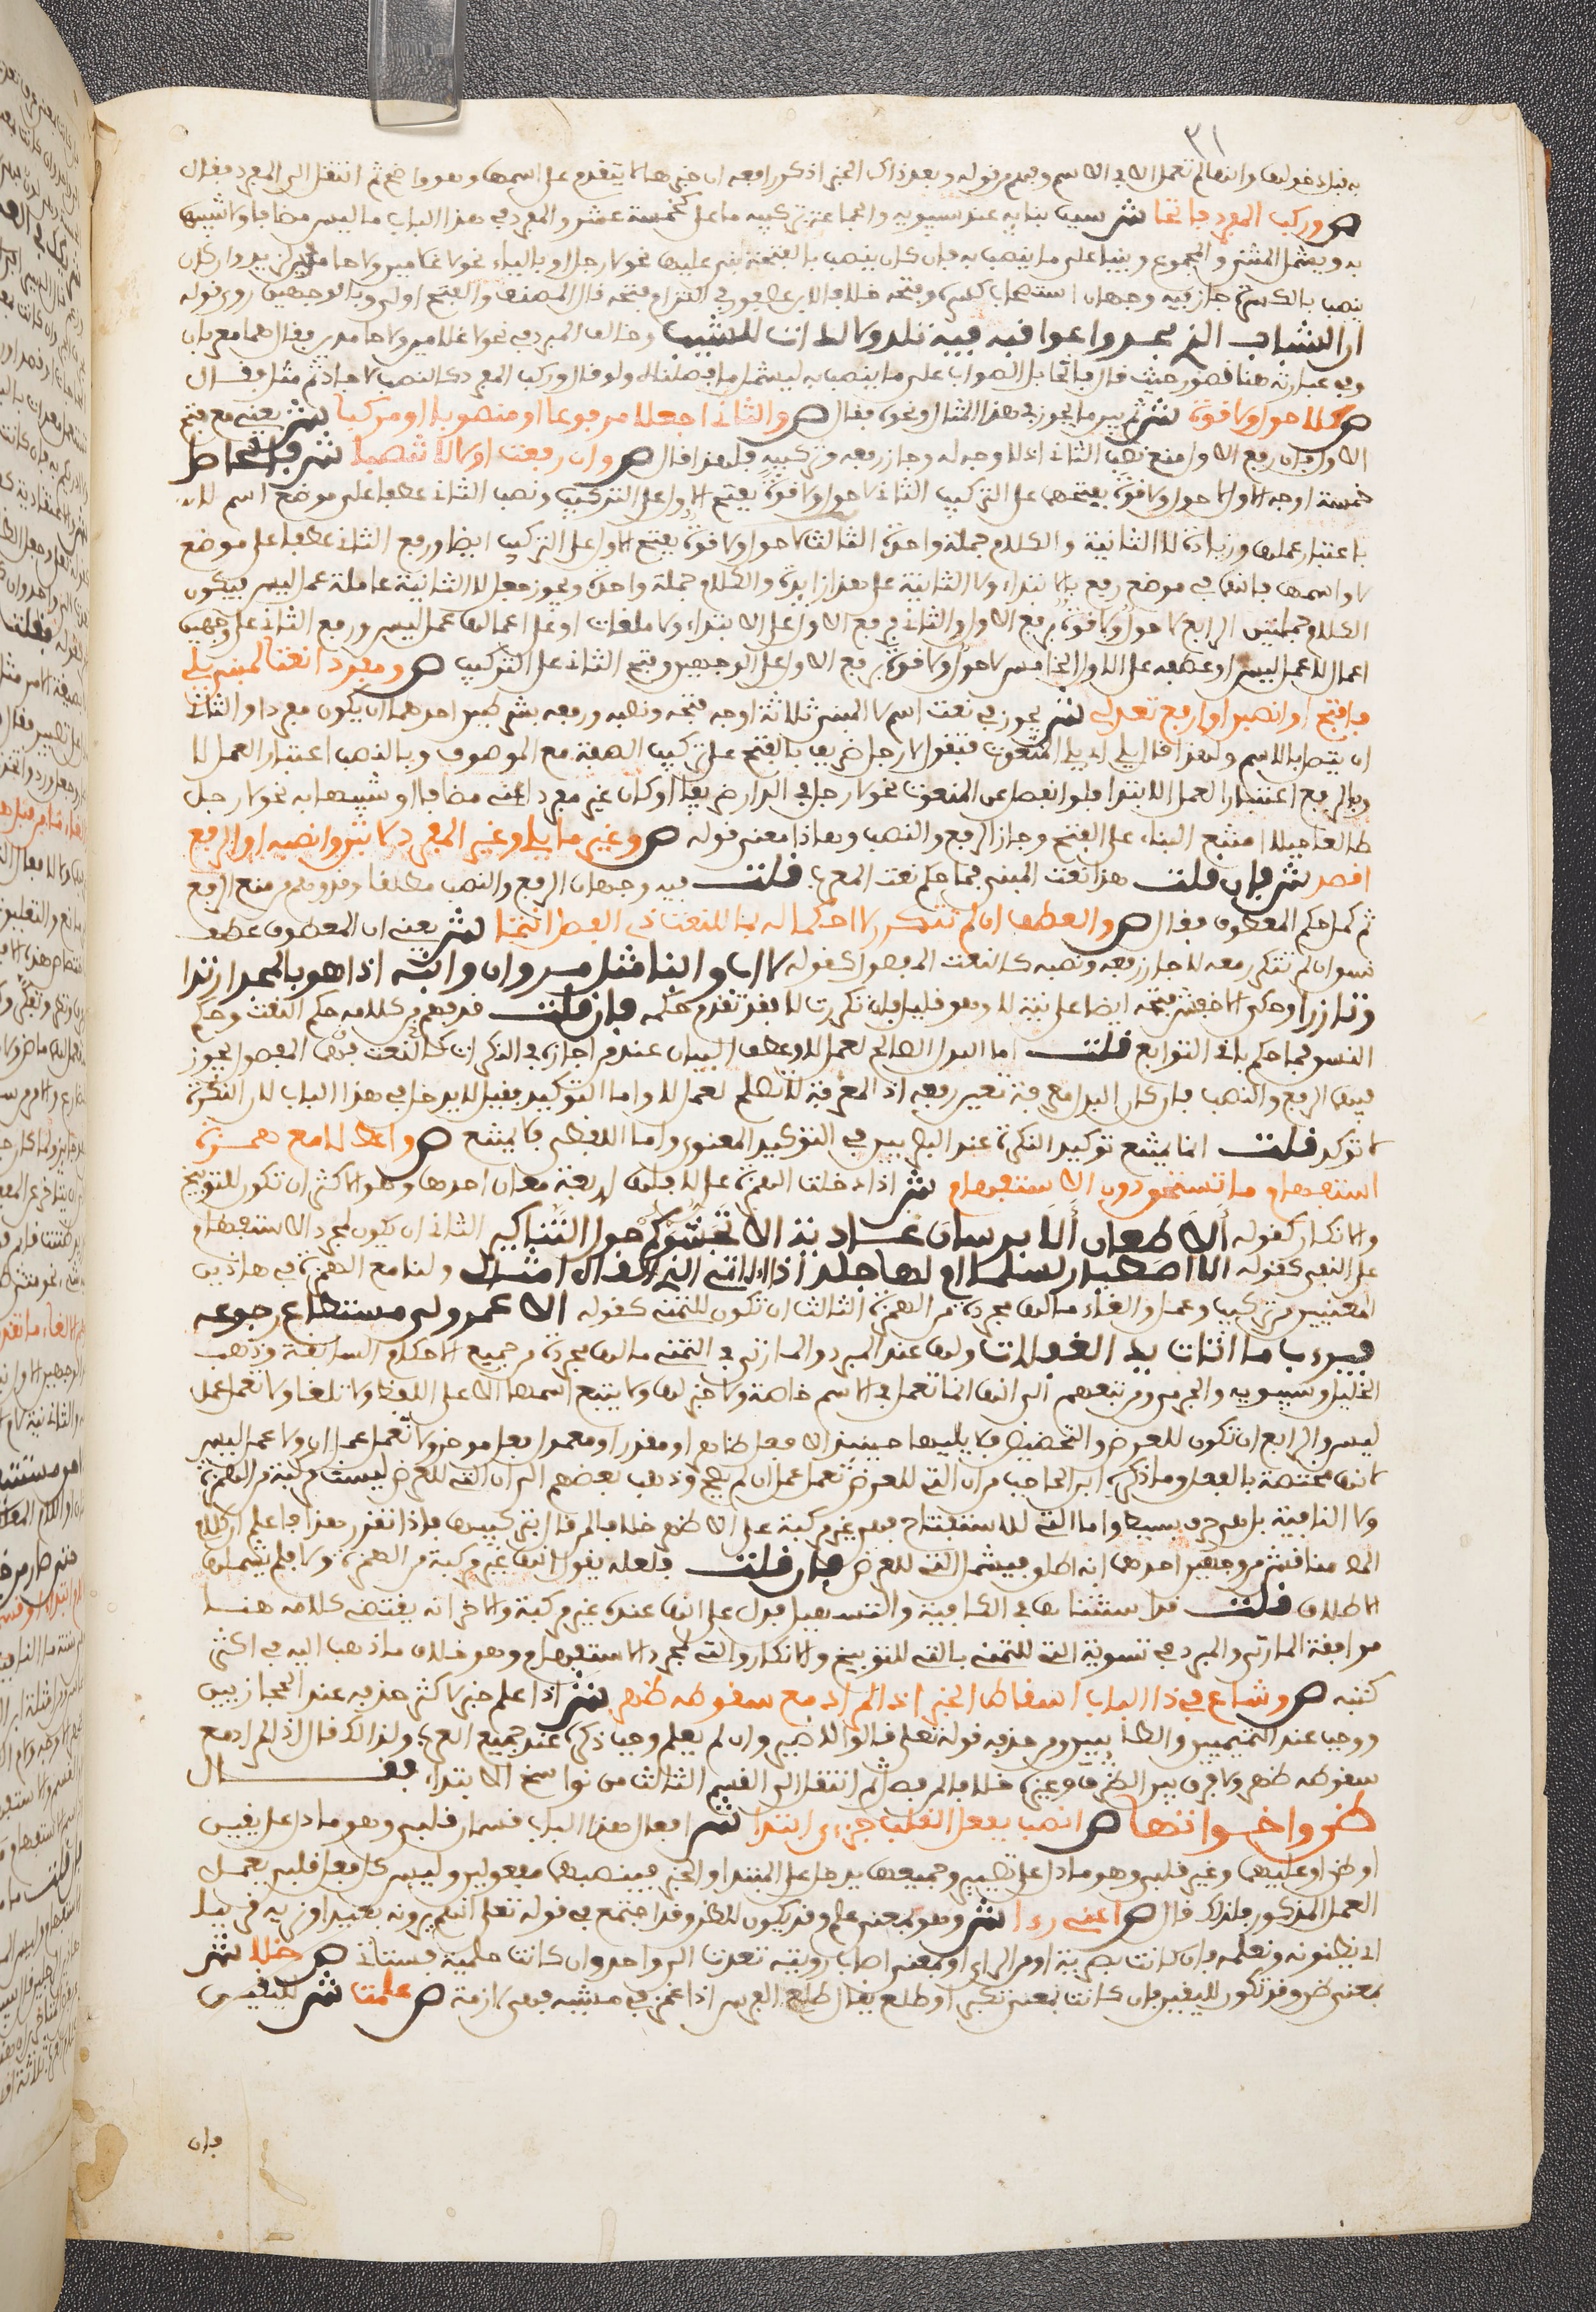 ٣١
ص وركب المفرد فاتحا ش سيب بنايه عند سيبويه والجماعة تركيبه معها كخمسة عشر والمفرد في هذا الباب ما ليس مضافا ولا شبيها
به ويشمل المثنى والمجموع ويبنيا على ما ينصب به فإن كان ينصب بالفتحة بنى عليها نحو لا رجل او بالياء نحو لا غلامين ولا حامدين لزيد وان كان
ينصب بالكسرة جاز فيه وجهان استصحاب كسره وفتحه خلافا لابن عصفور في التزام فتحه قال المصنف والفتح اولى وبالوجهين روي قوله
ان الشباب الذي مجد عواقبه فيه نلذ ولا لذات للشيب وخالف المبرد في نحو لا غلامين ولا حامدين فقال هما معربان
وفي عبارته هنا قصور حيث قال فاتحا بل الصواب على ما ينصب به ليشمل ما فصلناه ولو قال وركب المفرد كالنصب لاجاد ثم مثل فقال
ص كلا حول ولا قوة ش ثم بين ما يجوز في هذا المثال ونحوه فقال ص والثاني اجعلا مرفوعا او منصوبا او مركبا ش يعني مع فتح
الاول فإن رفع الاول امتنع نصب الثاني اذ لا وجه له وجاز رفعه وتركيبه فلهذا قال ص وان رفعت اولا لا تنصبا ش فالحاصل
خمسة اوجه الاول لا حول ولا قوة بفتحهما على التركيب الثاني لا حول ولا قوة بفتح الاول على التركيب ونصب الثاني عطفا على موضع اسم لا
باعتبار عملها وزيادة لا الثانية والكلام جملة واحدة الثالث لا حول ولا قوة بفتح الاول على التركيب ايضا ورفع الثاني عطفا على موضع
لا واسمها فانهما في موضع رفع بالابتداء ولا الثانية على هذا زايدة والكلام جملة واحدة ويجوز جعل لا الثانية عاملة عمل ليس فيكون
الكلام جملتين الرابع لا حول ولا قوة برفع الاول والثاني فرفع الاول على الابتداء ولا ملغات او على اعمالها عمل ليس ورفع الثاني على وجهين
اعمال لا عمل ليس او عطفه على الاول الخامس لا حول ولا قوة برفع الاول على الوجهين وفتح الثاني على التركيب ص ومفردا نعتا لمبني يلي
فافتح او انصبن او ارفع تعدل ش يجوز في نعت اسم لا المبني ثلاثة اوجه فتحه ونصبه ورفعه بشرطين احدهما ان يكون مفردا والثاني
ان يتصل بالاسم ولهذا قال يلي اي يلي المنعوت فتقول لا رجل ظريف بالفتح على تركيب الصفة مع الموصوف وبالنصب اعتبارا لعمل لا
وبالرفع اعتبارا لعمل الابتدا فلو انفصل عن المنعوت نحو لا رجل في الدار ظريفا او كان غير مفرد اعني مضافا او شبيها به نحو لا رجل
طالعا جبلا امتنع البناء على الفتح وجاز الرفع والنصب وهذا معنى قوله ص وغير ما يلي وغير المفرد لا تبن وانصبه او الرفع
اقصد ش فإن قلت هذا نعت المبني فما حكم نعت المعرب قلت فيه وجهان الرفع والنصب مطلقا
ثم كمل حكم المعطوف فقال ص والعطف ان لم تتكرر لا احكما له بما للنعت ذي الفصل انتما ش يعني ان المعطوف عطف
نسق ان لم تتكرر معه لا جاز رفعه ونصبه كالنعت المفصول كقوله لا اب وابنا مثل مروان وابنه اذا هو بالمجد ارتدا
وتازرا وحكى الاخفش فتحه ايضا على نية لا وهو قليل فإن تكررت لا فقد تقدم حكمه فإن قلت قد فهم من كلامه حكم النعت وحكم
النسق فما حكم باقي التوابع قلت اما البدل الصالح لعمل لا وعطف البيان عند من اجازه في النكرات كالنعت المفصول يجوز
فيهما الرفع والنصب فإن كان البدل معرفة تعين رفعه اذ المعرفة لا تصلح لعمل لا واما التوكيد فقيل لا يدخل في هذا الباب لان النكرة
لا توكد قلت انما يمتنع توكيد النكرة عند البصريين في التوكيد المعنوي واما اللفظي فلا يمتنع ص واعط لا مع همزة
استفهام ما تستحق دون الاستفهام ش اذا دخلت الهمزة على لا فلها اربعة معان احدها وهو الاكثر ان تكون للتوبيخ
والانكار كقوله الا طعان الا فرسان عادية الا تجشؤكم حول التنانير الثاني ان يكون لمجرد الاستفهام
على النفي كقوله الا اصطبار لسلمى ام لها جلد اذا الاقي الذي لاقاه امثالي ولا مع الهمزة في هاذين
المعنيين من تركيب وعمل والغاء ما لها مجردة من الهمزة الثالث ان تكون للتمني كقوله الا عمر ولى مستطاع رجوعه
فيرءب ما اثات يد الغفلات ولها عند المبرد والمازني في التمني ما لها مجردة من جميع الاحكام السابقة وذهب
الخليل وسيبويه والجرمي ومن تبعهم الى انها انما تعمل في الاسم خاصة ولا خبر لها ولا يتبع اسمها الا على اللفظ ولا تلغا ولا تعمل عمل
ليس والرابع ان تكون للعرض والتحضيض فلا يليها حينئذ الا فعل ظاهر او مقدر او معمول فعل موخر ولا تعمل عمل ان ولا عمل ليس
لانها مختصة بالفعل وما ذكره ابن الحاجب من ان التي للعرض تعمل عمل ان لم يصح وذهب بعضهم الى ان التي للعرض ليست مركبة من الهمزة
ولا النافية بل هي حرف بسيط واما التي للاستفتاح فهي غير مركبة على الاظهر خلافا لمن قال بتركيبها فإذا تقرر هذا فاعلم ان كلام
المص مناقش من وجهين احدهما انه اطلق فيشمل التي للعرض فإن قلت فلعله يقول انها غير مركبة من الهمزة ولا فلم يشملها
الاطلاق قلت قد استثناها في الكافية والتسهيل فدل على انها عنده غير مركبة والاخر انه يقتضي كلامه هنا
موافقة المازني والمبرد في تسوية التي للتمني بالتي للتوبيخ والانكار والتي لمجرد الاستفهام وهو خلاف ما ذهب اليه في اكثر
كتبه ص وشاع في ذا الباب اسقاط الخبر اذا المراد مع سقوطه ظهر ش اذا علم خبر لا كثر حذفه عند الحجازيين
ووجب عند التميميين والطايين ومن حذفه قوله تعلى قالوا لا ضير وان لم يعلم وجب ذكره عند جميع العرب ولذالك قال اذا المراد مع
سقوطه ظهر ولا فرق بين الظرف وغيره خلافا لمن فصل ثم انتقل الى القسم الثالث من نواسخ الابتداء فقال
ظن واخواتها ص انصب بفعل القلب جزءي ابتدا ش افعال هذا الباب قسمان قلبي وهو ما دل على يقين
او ظن او عليهما وغير قلبي وهو ما دل على تصيير وجميعها يدخل على المبتدا والخبر فينصبهما مفعولين وليس كل فعل قلبي يعمل
العمل المذكور فلذلك قال ص اعني رءا ش وهو بمعنى علم وقد يكون للظن وقد اجتمعا في قوله تعلى انهم يرونه بعيدا ونريه قريبا
اي يظنونه ونعلمه فإن كانت بصرية او من الراي او بمعنى اصاب رويته تعدت الى واحد وان كانت حلمية فستاتي ص خلا ش
بمعنى ظن وقد تكون لليقين فإن كانت بمعنى تكبر او ظلع يقال ظلع الفرس اذا غمز في مشيه فهي لازمة ص علمت ش لليقين
فإن